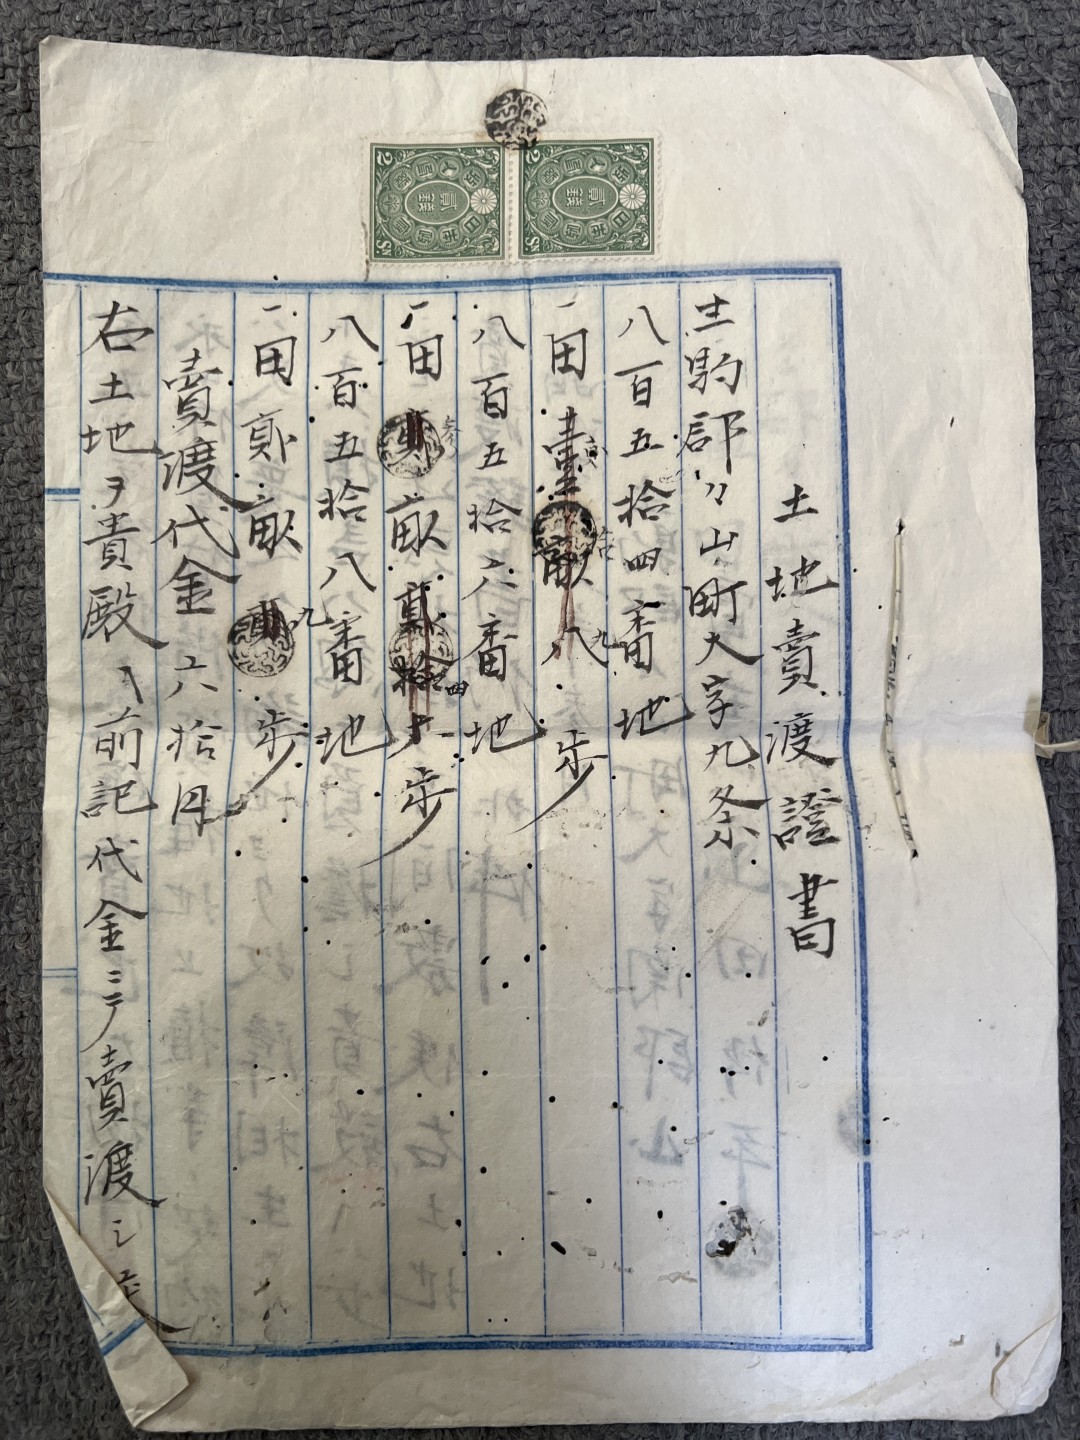 貳錢
2 SN
貳錢
2 SN
土地賣渡證書
生駒郡々山町大字九条
八百五拾四番地
一田壹畝八九歩
八百五拾六番地
一田貳参畝貳拾六四歩
八百五拾八番地
一田貳畝貳九歩
賣渡代金六拾円
右土地ヲ貴殿ヘ前記代金ニテ賣渡シ